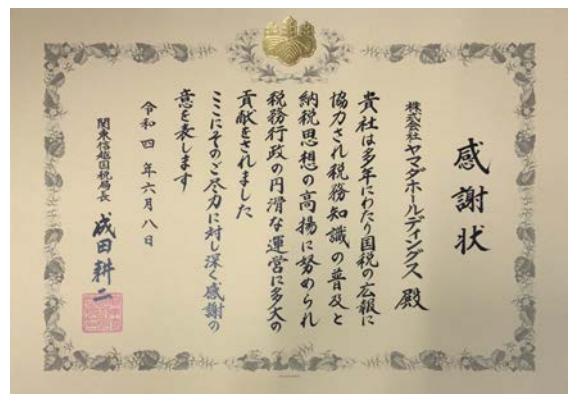 感謝状
株式会社ヤマダホールディングス 殿
貴社は多年にわたり国税の広報に
協力され税務知識の普及と
納税思想の高揚に努められ
税務行政の円滑な運営に多大の
貢献をされました
ここにそのご尽力に対し深く感謝の
意を表します
令和四年六月八日
関東信越国税局長 成田耕二